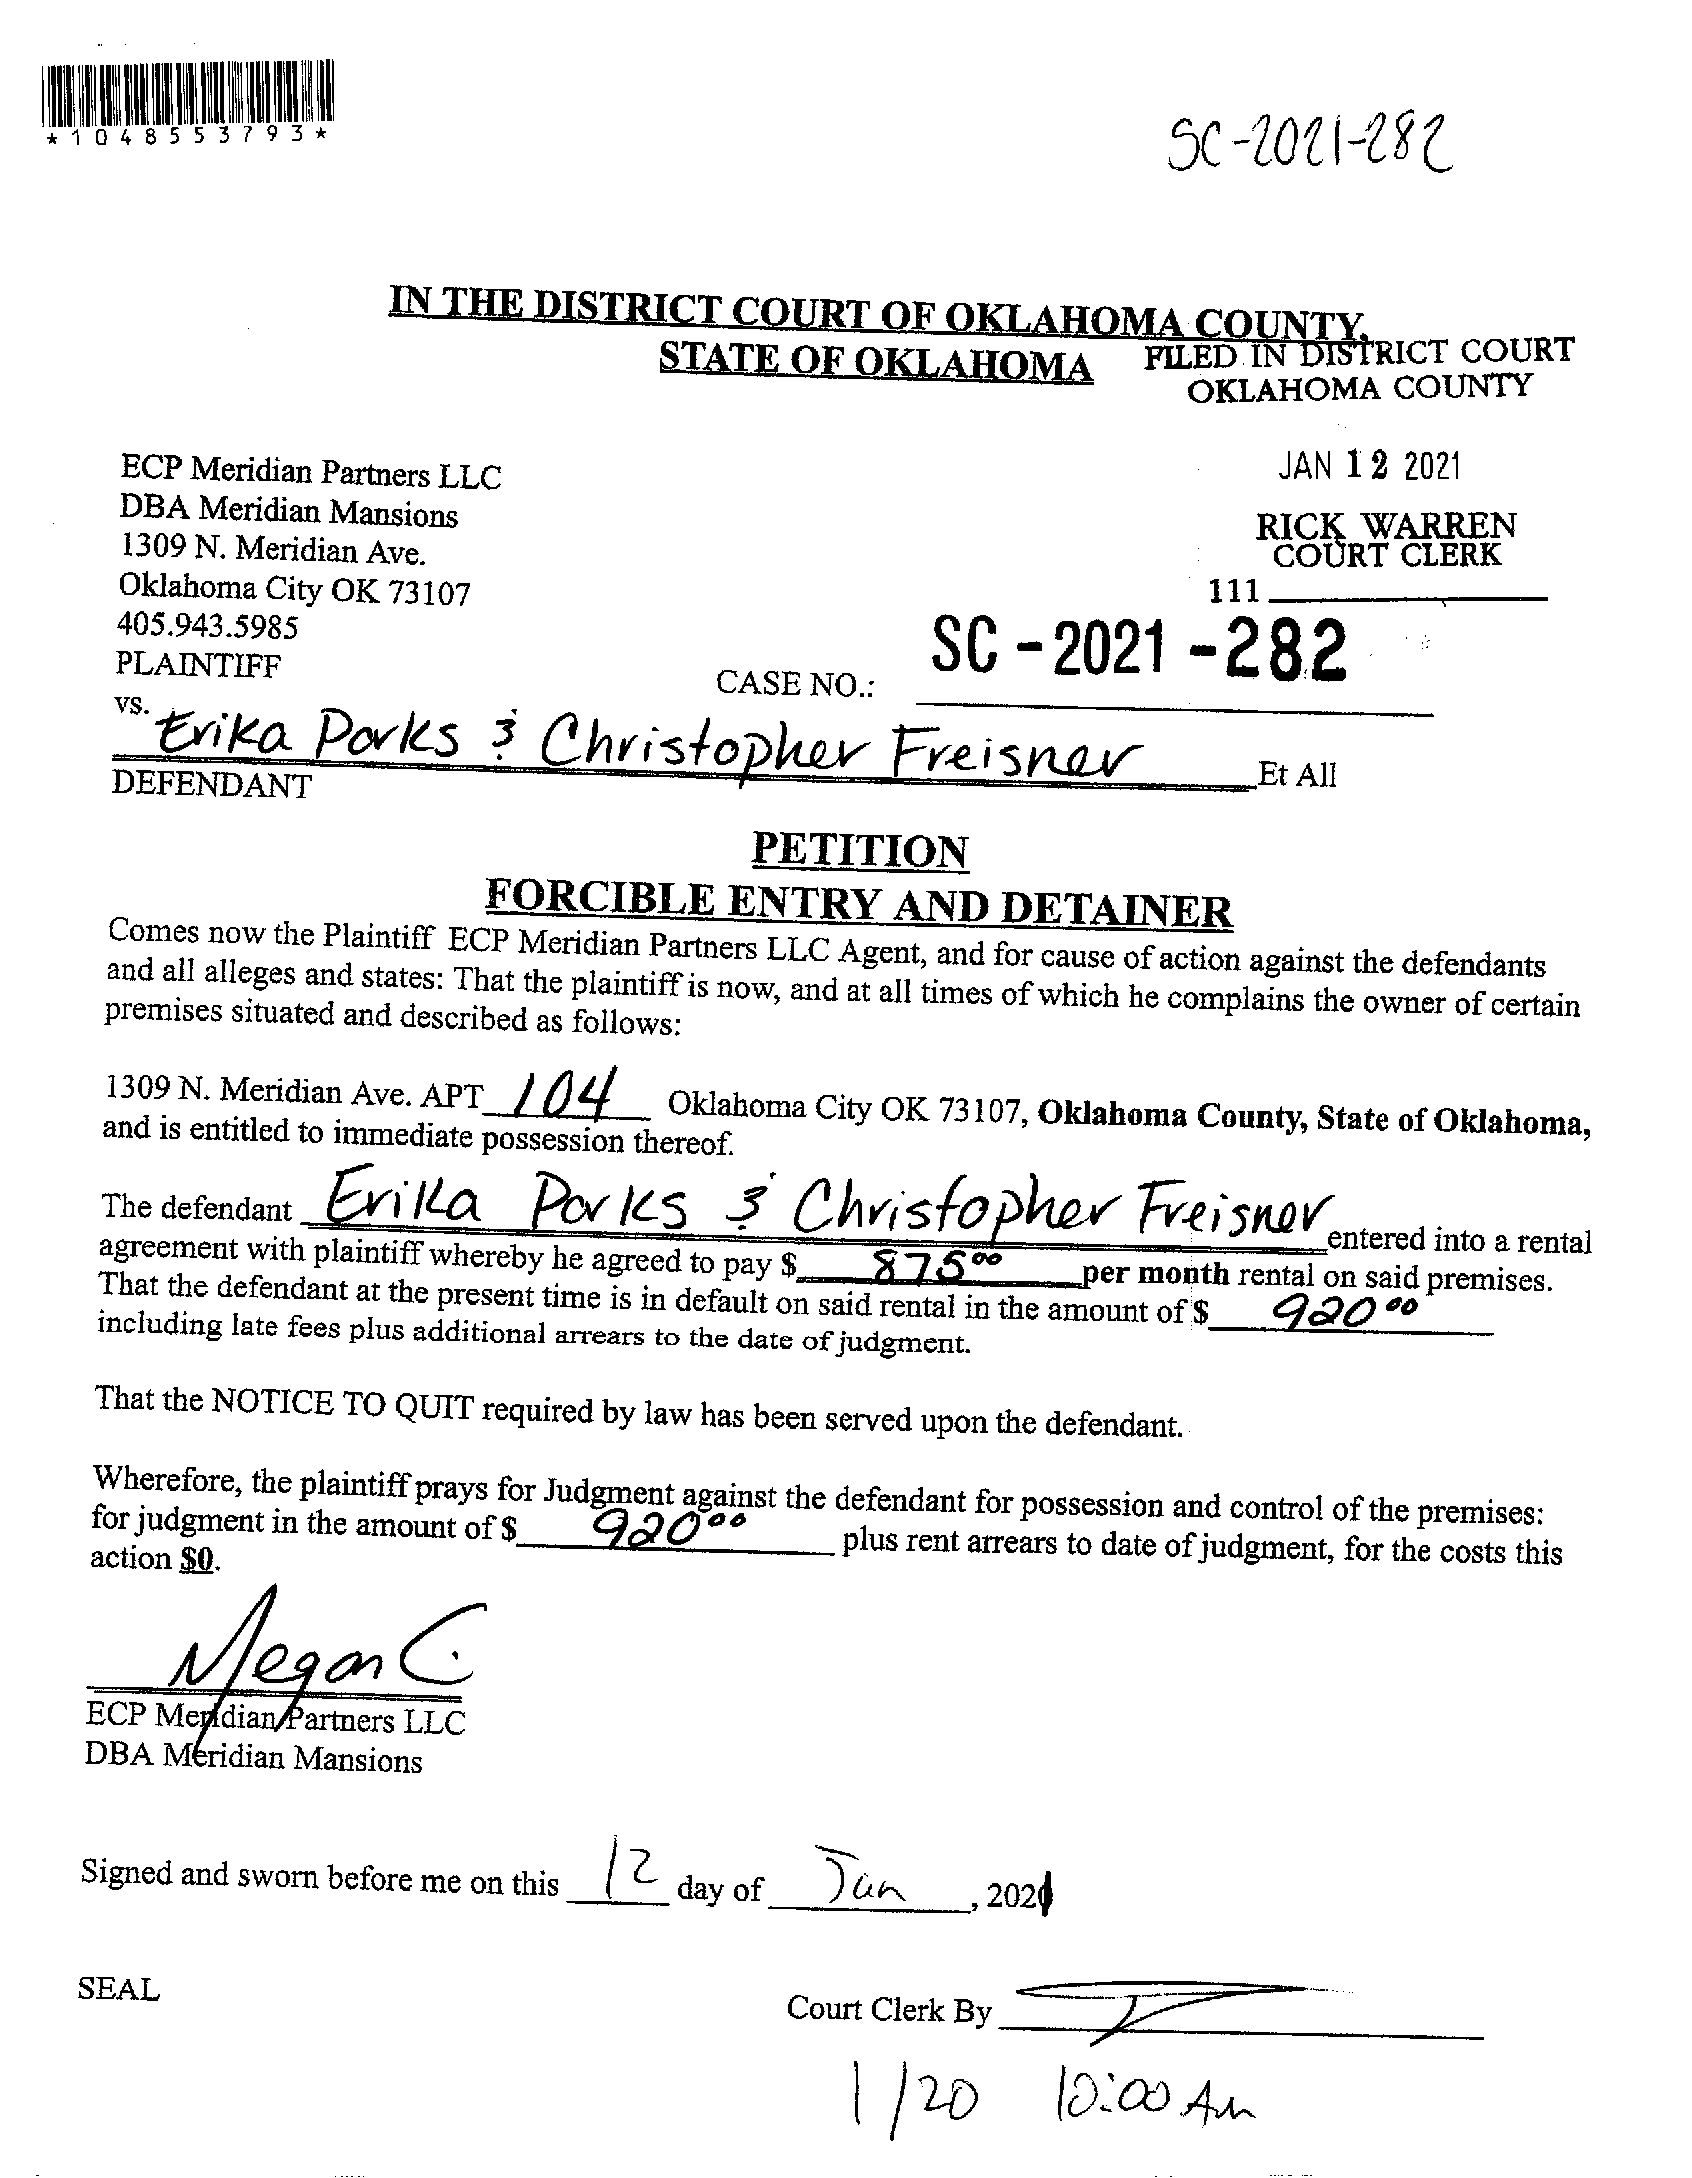 *1048553793*
SC-2021-282
IN THE DISTRICT COURT OF OKLAHOMA COUNTY,
STATE OF OKLAHOMA
FILED IN DISTRICT COURT
OKLAHOMA COUNTY
JAN 12 2021
RICK WARREN
COURT CLERK
111
ECP Meridian Partners LLC
DBA Meridian Mansions
1309 N. Meridian Ave.
Oklahoma City OK 73107
405.943.5985
PLAINTIFF
CASE NO.: SC-2021-282
vs.
Erika Parks & Christopher Freisner Et All
DEFENDANT
PETITION
FORCIBLE ENTRY AND DETAINER
Comes now the Plaintiff ECP Meridian Partners LLC Agent, and for cause of action against the defendants
and all alleges and states: That the plaintiff is now, and at all times of which he complains the owner of certain
premises situated and described as follows:
1309 N. Meridian Ave. APT 104 Oklahoma City OK 73107, Oklahoma County, State of Oklahoma,
and is entitled to immediate possession thereof.
The defendant Erika Parks & Christopher Freisner entered into a rental
agreement with plaintiff whereby he agreed to pay $ 875.00 per month rental on said premises.
That the defendant at the present time is in default on said rental in the amount of $ 920.00
including late fees plus additional arrears to the date of judgment.
That the NOTICE TO QUIT required by law has been served upon the defendant.
Wherefore, the plaintiff prays for Judgment against the defendant for possession and control of the premises:
for judgment in the amount of $ 920.00 plus rent arrears to date of judgment, for the costs this
action $0.
Megan C.
ECP Meridian Partners LLC
DBA Meridian Mansions
Signed and sworn before me on this 12 day of Jan, 2021
SEAL
Court Clerk By
1/20 10:00 AM